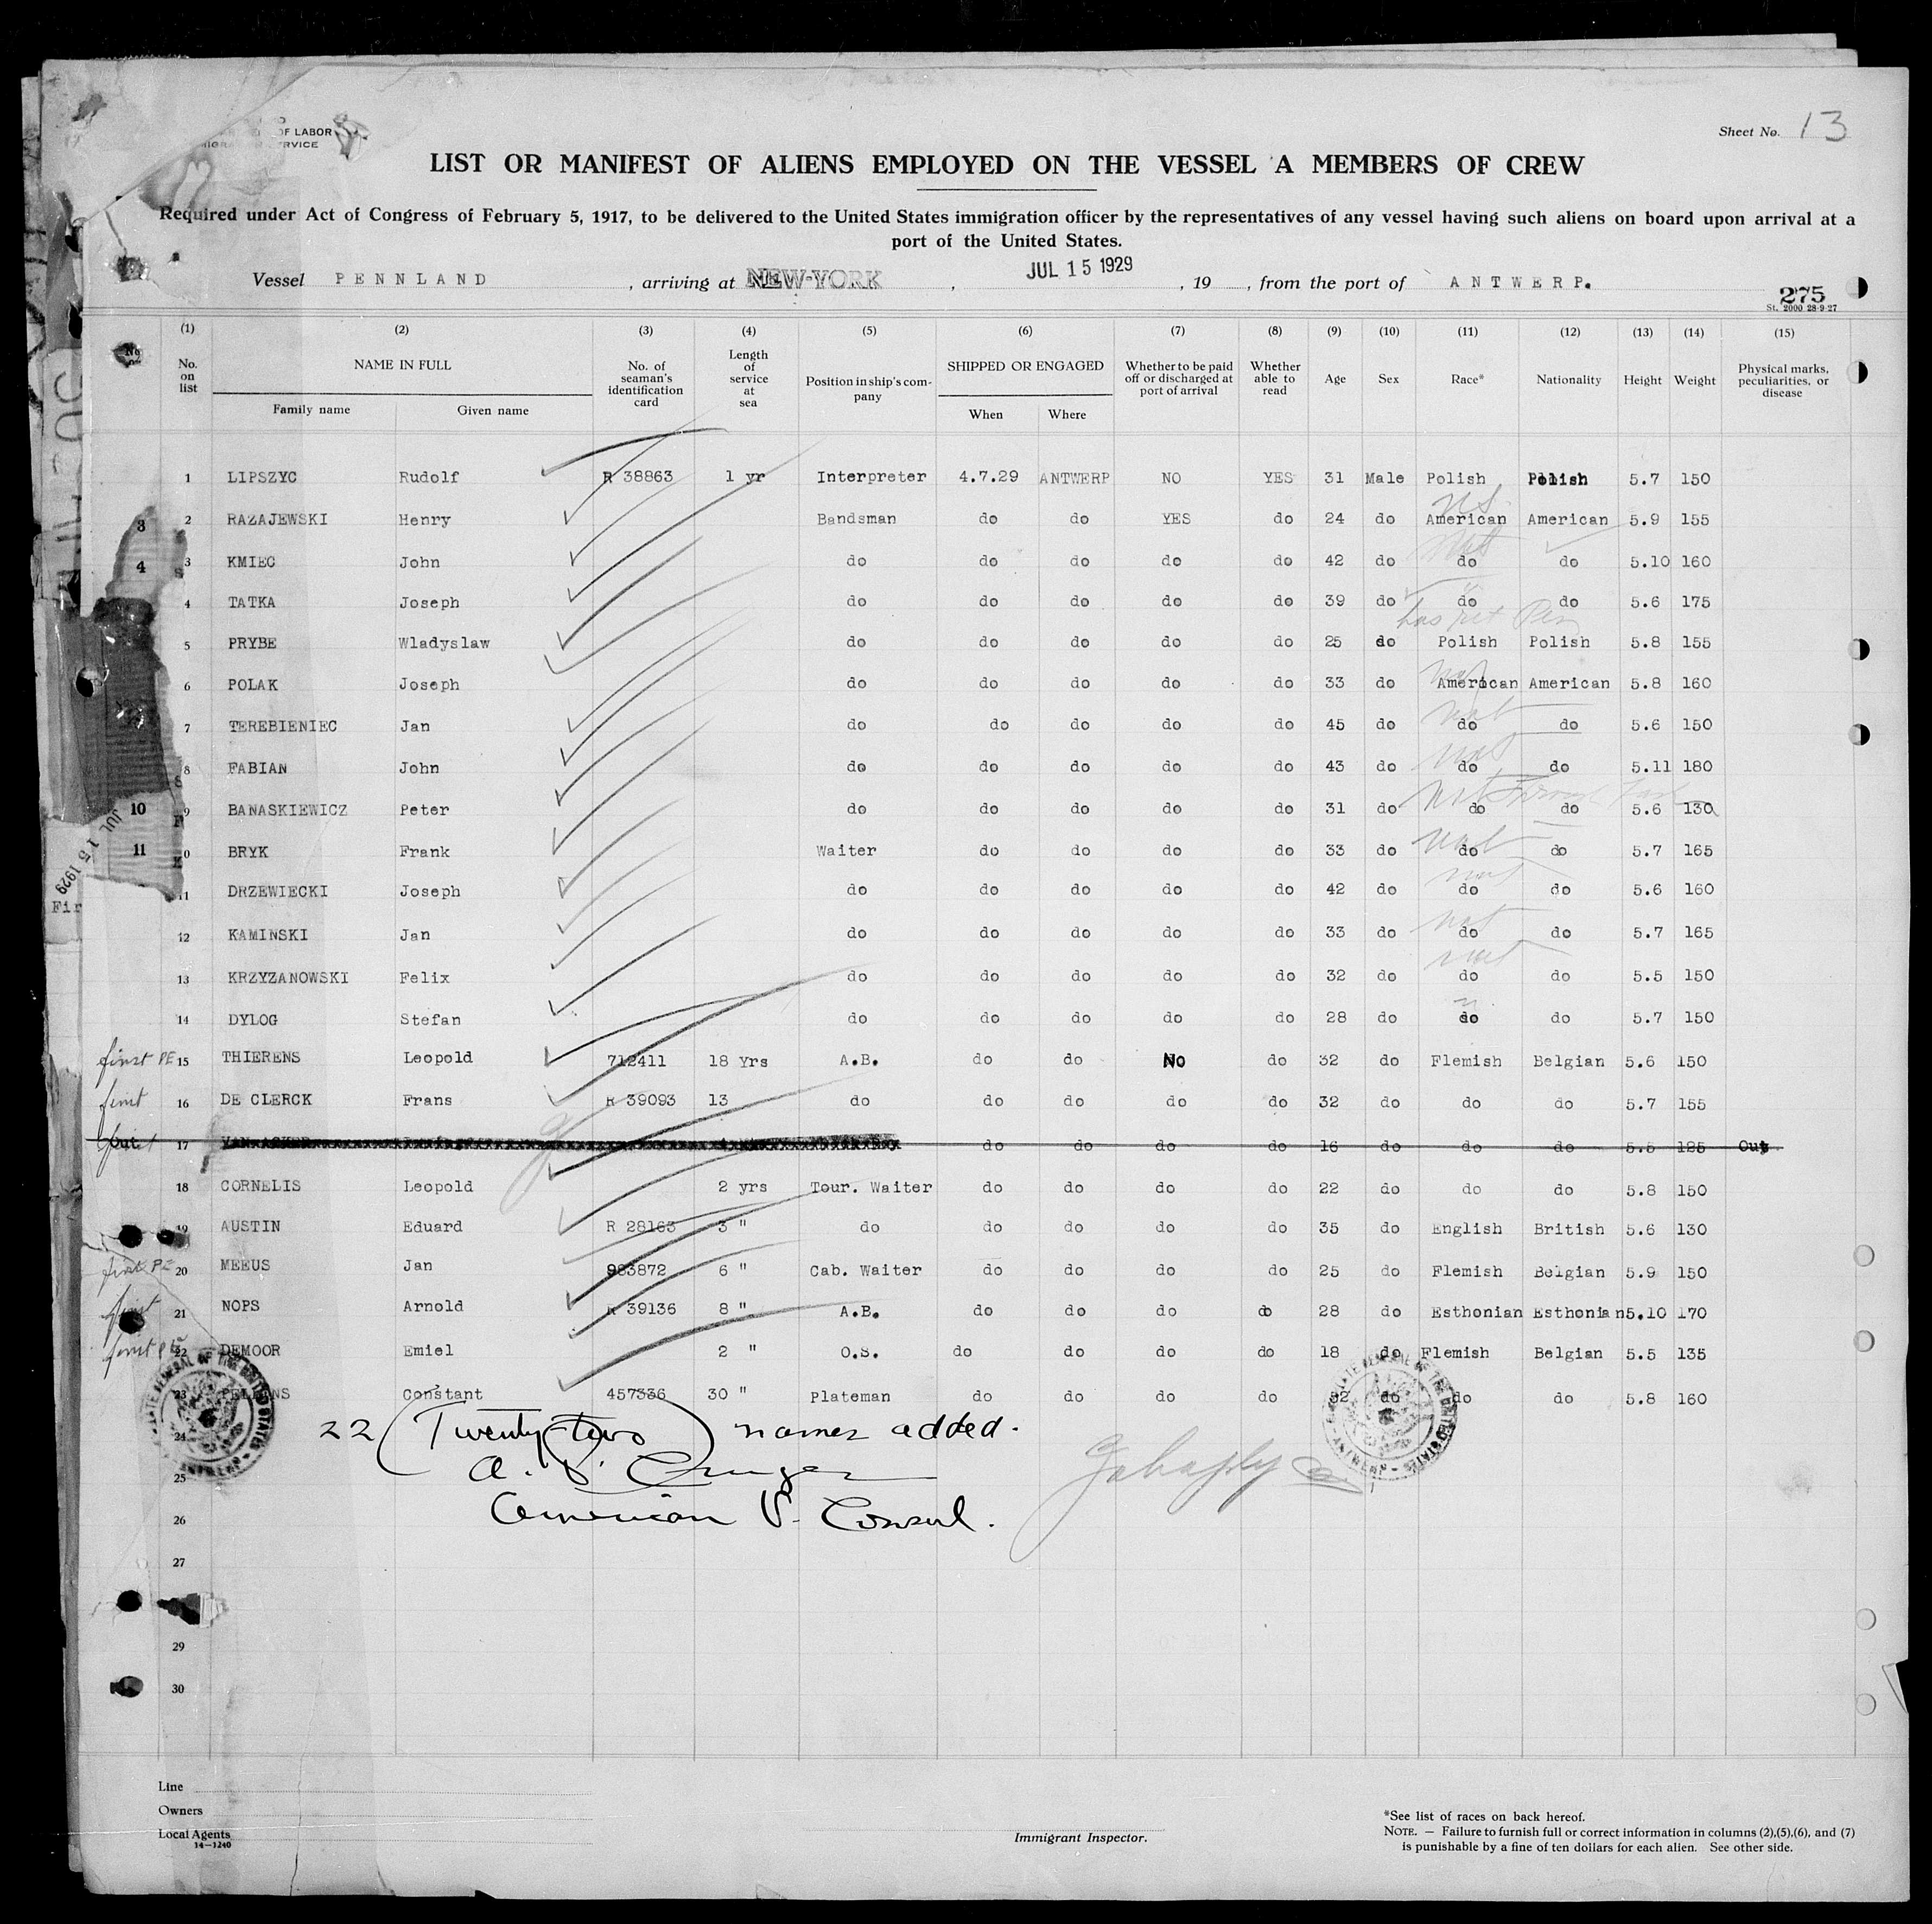 OF LABOR
Sheet No. 13
LIST OR MANIFEST OF ALIENS EMPLOYED ON THE VESSEL A MEMBERS OF CREW
Required under Act of Congress of February 5, 1917, to be delivered to the United States immigration officer by the representatives of any vessel having such aliens on board upon arrival at a
port of the United States.
Vessel PENNLAND, arriving at NEW-YORK, JUL 15 1929, 19, from the port of ANTWERP.
275
St. 2000 28-9-27
(1) (2) (3) (4) (5) (6) (7) (8) (9) (10) (11) (12) (13) (14) (15)
No. on list NAME IN FULL Family name Given name No. of seaman's identification card Length of service at sea Position in ship's company SHIPPED OR ENGAGED When Where Whether to be paid off or discharged at port of arrival Whether able to read Age Sex Race* Nationality Height Weight Physical marks, peculiarities, or disease
1 LIPSZYC Rudolf R 38863 1 yr Interpreter 4.7.29 ANTWERP NO YES 31 Male Polish Polish 5.7 150
3 2 RAZAJEWSKI Henry Bandsman do do YES do 24 do American American 5.9 155
4 3 KMIEC John do do do do do 42 do do do 5.10 160
4 TATKA Joseph do do do do do 39 do do do 5.6 175
5 PRYBE Wladyslaw do do do do do 25 do Polish Polish 5.8 155
6 POLAK Joseph do do do do do 33 do American American 5.8 160
7 TEREBIENIEC Jan do do do do do 45 do do do 5.6 150
8 FABIAN John do do do do do 43 do do do 5.11 180
10 9 BANASKIEWICZ Peter do do do do do 31 do do do 5.6 130
11 0 BRYK Frank Waiter do do do do 33 do do do 5.7 165
11 DRZEWIECKI Joseph do do do do do 42 do do do 5.6 160
12 KAMINSKI Jan do do do do do 33 do do do 5.7 165
13 KRZYZANOWSKI Felix do do do do do 32 do do do 5.5 150
14 DYLOG Stefan do do do do do 28 do do do 5.7 150
first PE 15 THIERENS Leopold 712411 18 Yrs A.B. do do No do 32 do Flemish Belgian 5.6 150
first 16 DE CLERCK Frans R 39093 13 do do do do do 32 do do do 5.7 155
Out 17 do do do do 16 do do do 5.5 125 Out
18 CORNELIS Leopold 2 yrs Tour. Waiter do do do do 22 do do do 5.8 150
19 AUSTIN Eduard R 28163 3 " do do do do do 35 do English British 5.6 130
first PE 20 MEEUS Jan 983872 6 " Cab. Waiter do do do do 25 do Flemish Belgian 5.9 150
first 21 NOPS Arnold R 39136 8 " A.B. do do do do 28 do Esthonian Esthonian 5.10 170
first PE 22 DEMOOR Emiel 2 " O.S. do do do do 18 do Flemish Belgian 5.5 135
23 Constant 457336 30 " Plateman do do do do 52 do do do 5.8 160
24
22 (Twenty-two) names added.
25
American V. Consul.
26
27
29
30
JUL 15 1929
Fir
Line
Owners
Local Agents
14—1240
Immigrant Inspector.
*See list of races on back hereof.
NOTE. — Failure to furnish full or correct information in columns (2),(5),(6), and (7)
is punishable by a fine of ten dollars for each alien. See other side.